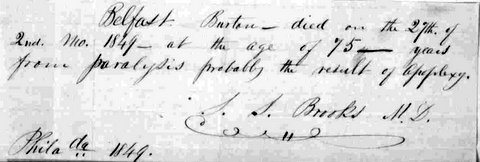 Belfast Burton – died on the 27th. of
2nd. Mo. 1849 – at the age of 75 — years
from paralysis probably the result of Applexy.
S. S. Brooks M.D.
Philada 1849.